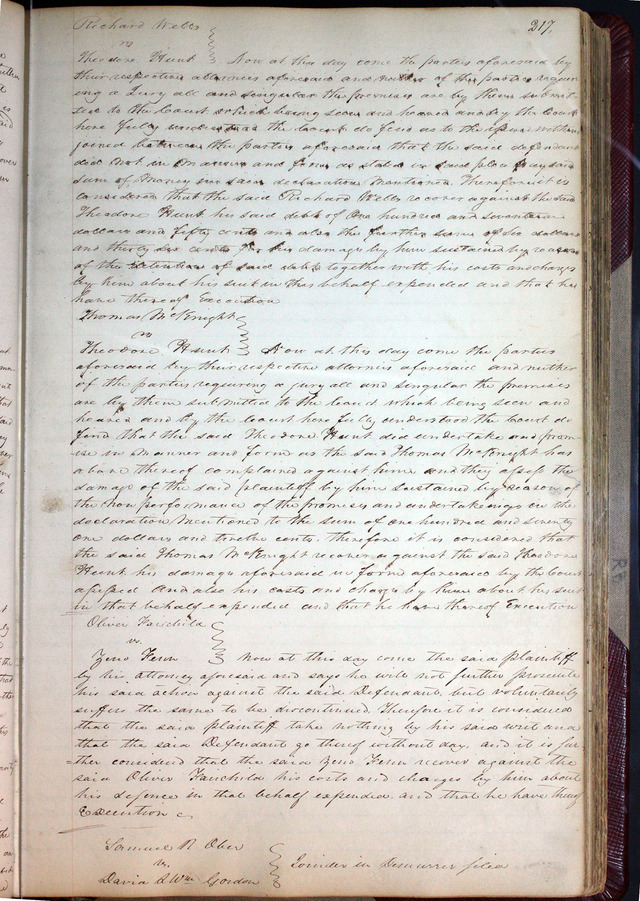 317
Richard Wells
vs
Theodore Hunt } Now at this day come the parties aforesaid by
their respective attornies aforesaid and neither of the parties requir
ing a Jury all and singular the premises are by them submit
ted to the Court which being seen and heard and by the Court
here fully understood the Court do find as to the issue within
joined between the parties aforesaid that the said defendant
did not in manner and form as stated in said plea pay said
sum of Money in said declaration Mentioned. Therefore it is
considered that the said Richard Wells recover against the said
Theodore Hunt his said debt of One hundred and seventeen
dollars and fifty cents and also the further sum of Six dollars
and thirty six cents for his damages by him sustained by reason
of the detention of said debt together with his costs and charges
by him about his suit in this behalf expended and that he
have thereof Execution
Thomas McKnight
vs
Theodore Hunt } Now at this day come the parties
aforesaid by their respective attornies aforesaid and neither
of the parties requiring a jury all and singular the premises
are by them submitted to the Court which being seen and
heard and by the Court here fully understood the Court do
find that the said Theodore Hunt did undertake and prom
ise in manner and form as the said Thomas McKnight has
above thereof complained against him and they assess the
damage of the said plaintiff by him sustained by reason of
the non performance of the promises and undertakings in the
declaration Mentioned to the sum of one hundred and seventy
one dollars and twelve cents. Therefore it is considered that
the said Thomas McKnight recover against the said Theodore
Hunt his damages aforesaid in form aforesaid by the Court
assessed and also his costs and charges by him about his suit
in that behalf expended and that he have thereof Execution
Oliver Fairchild
vs.
Zeno Fenn } Now at this day come the said plaintiff
by his Attorney aforesaid and says he will not further prosecute
his said action against the said Defendant but voluntarily
suffers the same to be discontinued. Therefore it is considered
that the said plaintiff take nothing by his said writ and
that the said Defendant go thereof without day. and it is fur
=ther considered that the said Zeno Fenn recover against the
said Oliver Fairchild his costs and charges by him about
his defence in that behalf expended and that he have thereof
Execution
Samuel R Ober
vs.
David & Wm Gordon } Joinder in Demurrer filed